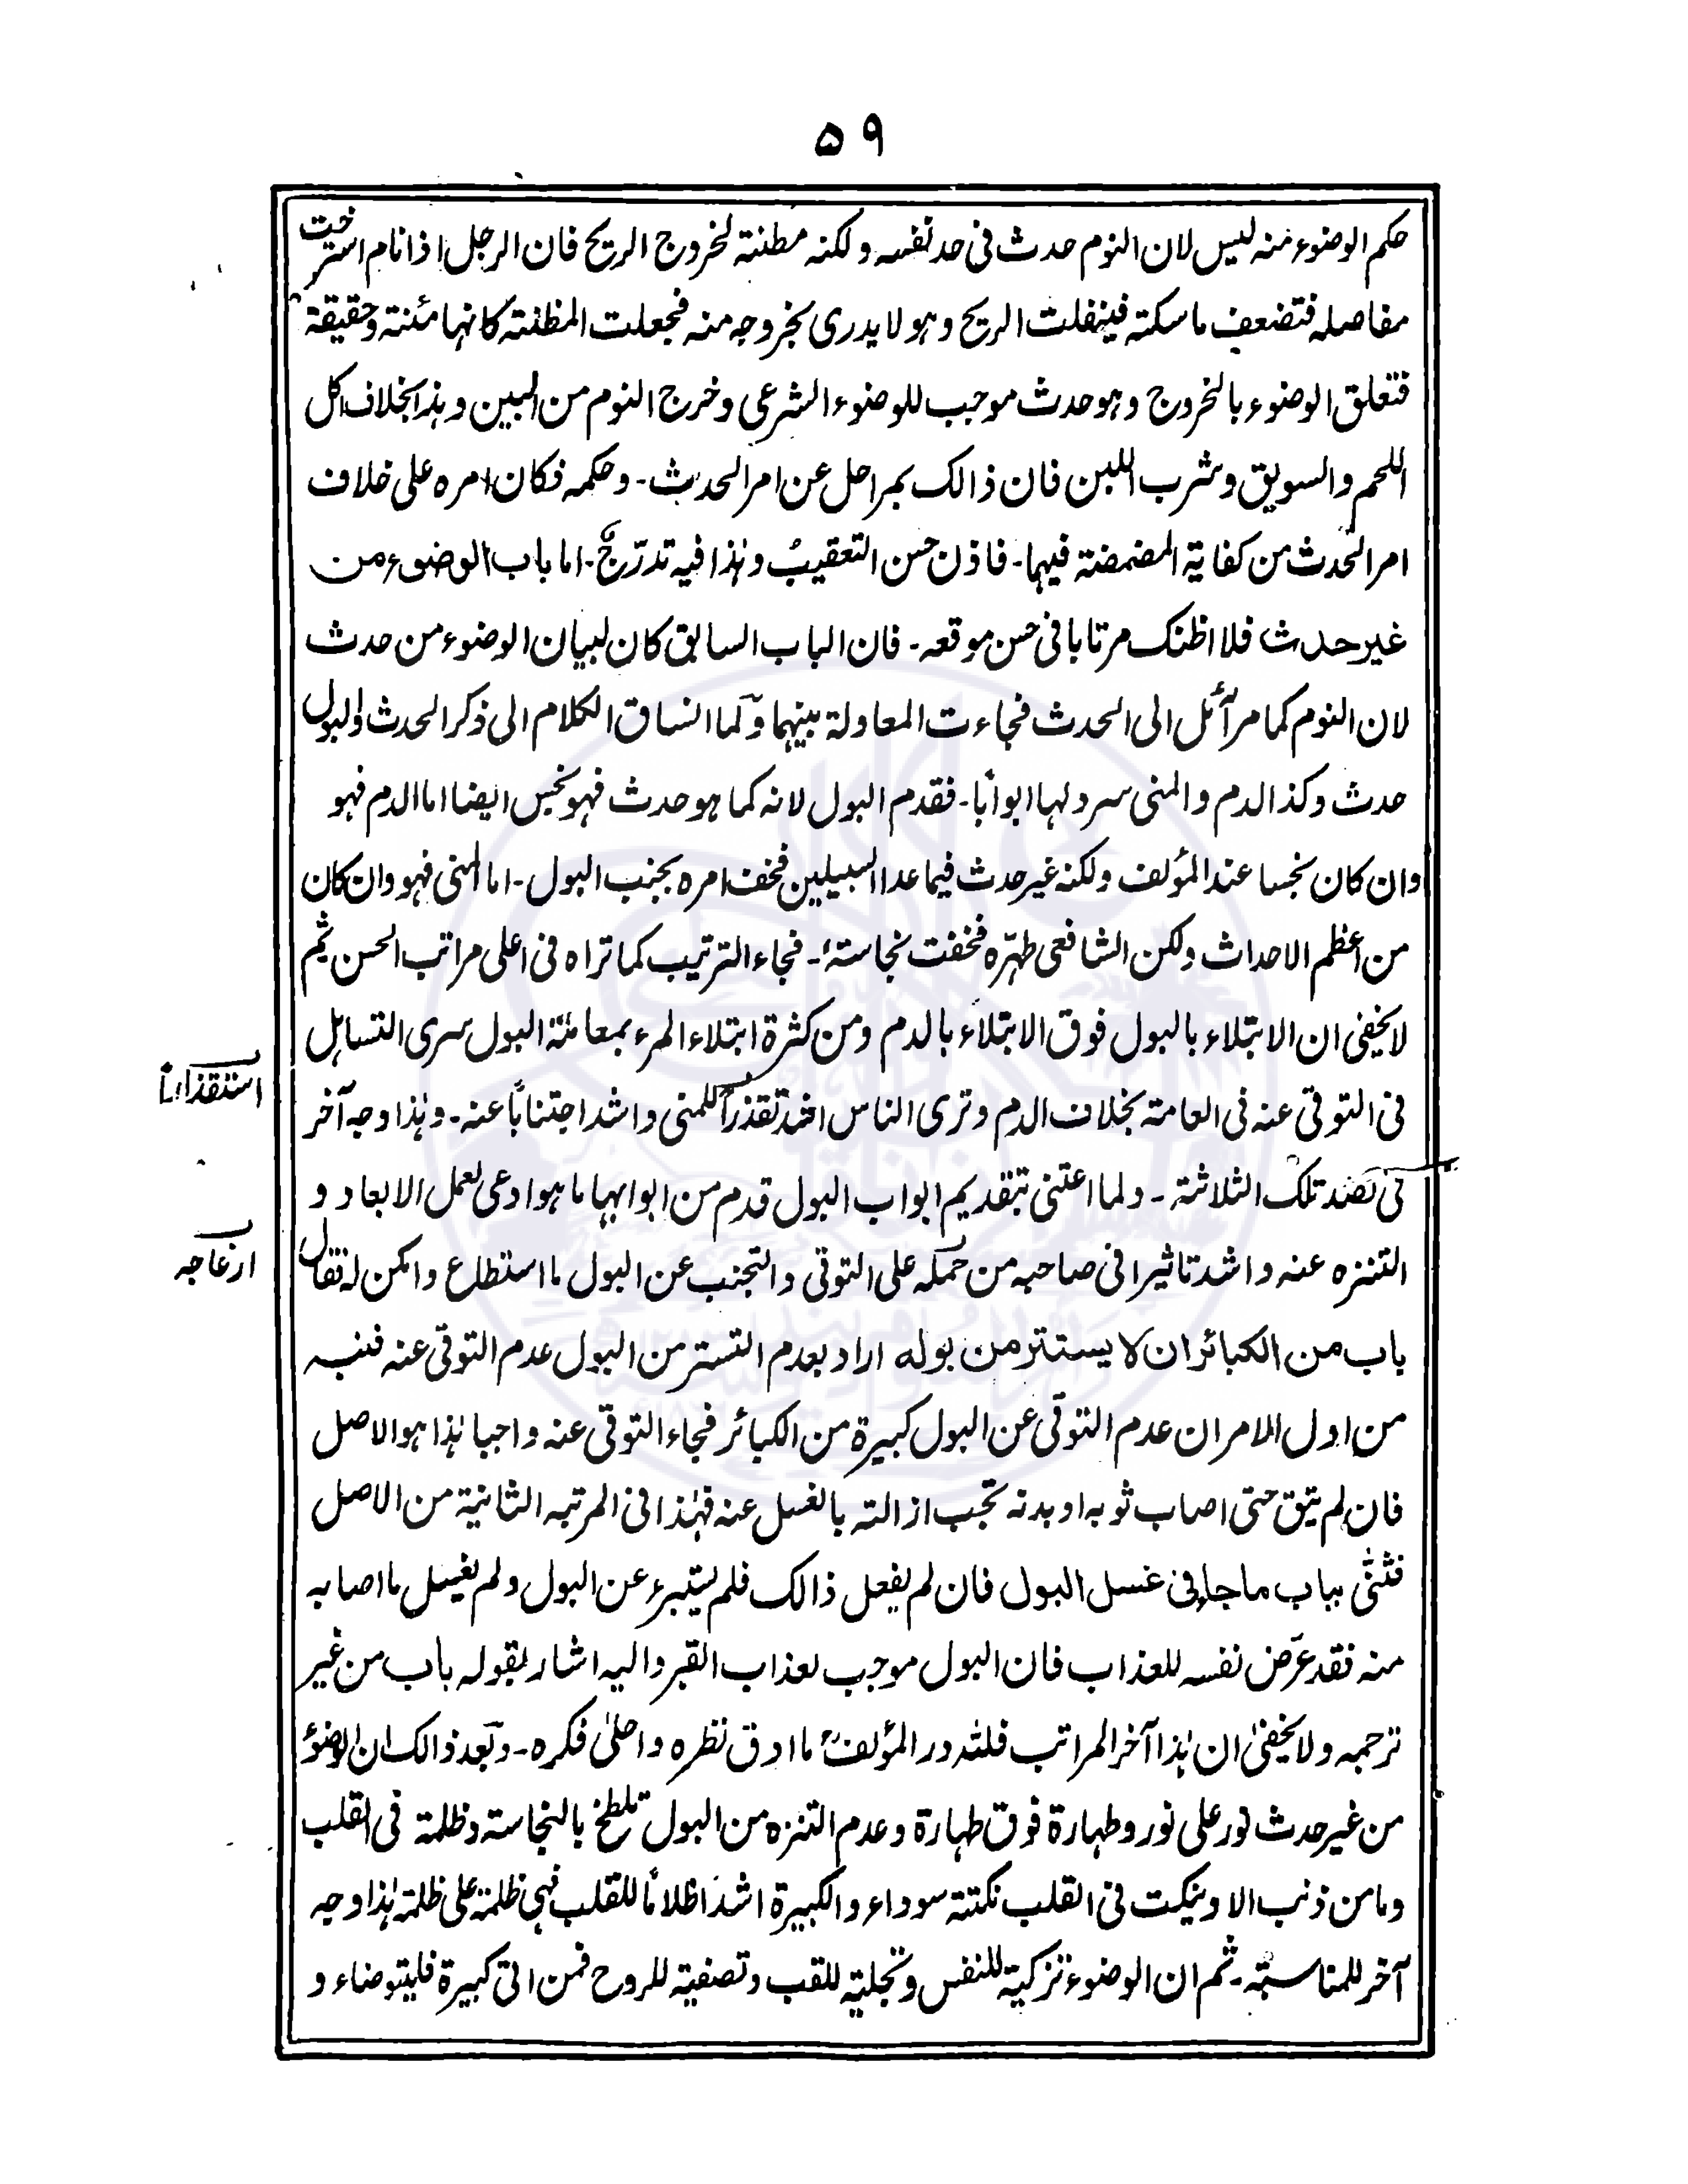 ۵۹
حکم الوضوء منه لیس لان النوم حدث فی حد نفسه و لکنه مظنته لخروج الریح فان الرجل اذا نام استرخت
مفاصله فتضعف ماسکته فینفلت الریح وهو لا یدری بخروجه منه فجعلت المظنته کانها مئنته وحقیقة
فتعلق الوضوء بالخروج وهو حدث موجب للوضوء الشرعی وخرج النوم من البین وهذا بخلاف اکل
اللحم والسویق وشرب اللبن فان ذالک بمراحل عن امر الحدث۔ وحکمه فکان امره علی خلاف
امر الحدث من کفایة المضمضته فیهما۔ فاذن حسن التعقیب وهذا فیه تدرّج۔ اما باب الوضوء من
غیر حدث فلا اظنک مرتابا فی حسن موقعه۔ فان الباب السابق کان لبیان الوضوء من حدث
لان النوم کما مر آئل الی الحدث فجاءت المعاولة بینهما ولما انساق الکلام الی ذکر الحدث والبول
حدث وکذا الدم والمنی سرد لها ابوابًا۔ فقدم البول لانه کما هو حدث فهو نجس ایضا اما الدم فهو
وان کان نجسا عند المؤلف ولکنه غیر حدث فیما عدا السبیلین فخف امره بجنب البول۔ اما المنی فهو وان کان
من اعظم الاحداث ولکن الشافعی طهّره فخفت نجاستهٔ۔ فجاء الترتیب کما تراه فی اعلی مراتب الحسن ثم
لا یخفی ان الابتلاء بالبول فوق الابتلاء بالدم ومن کثرة ابتلاء المرء بمعاملة البول سری التساهل
فی التوقی عنه فی العامته بخلاف الدم وتری الناس اشد تقذراً للمنی واشد اجتناباً عنه۔ وهذا وجه آخر
استقذاراً
فی نضد تلک الثلاثة۔ ولما اعتنی بتقدیم ابواب البول قدم من ابوابها ما هو ادعی لعمل الابعاد و
التنزه عنه واشد تاثیرا فی صاحبه من حمله علی التوقی والتجنب عن البول ما استطاع وامکن له فقال
ازعاجه
باب من الکبائر ان لا یستتر من بوله اراد بعدم التستر من البول عدم التوقی عنه فنبه
من اول الامر ان عدم التوقی عن البول کبیرة من الکبائر فجاء التوقی عنه واجبا هذا هو الاصل
فان لم یتق حتی اصاب ثوبه او بدنه تجب ازالته بالغسل عنه فهذا فی المرتبه الثانیة من الاصل
فثنّٰی بباب ما جاء فی غسل البول فان لم یفعل ذالک فلم یستبرء عن البول ولم یغسل ما اصابه
منه فقد عرّض نفسه للعذاب فان البول موجب لعذاب القبر والیه اشار بقوله باب من غیر
ترجمه ولا یخفیٰ ان هذا آخر المراتب فلله در المؤلفؒ ما ادق نظره واحلیٰ فکره۔ وبعد ذالک ان الوضوٗ
من غیر حدث نور علی نور وطهارة فوق طهارة وعدم التنزه من البول تلطخ بالنجاسته وظلمة فی القلب
وما من ذنب الا وینکت فی القلب نکتته سوداء والکبیرة اشد اظلاماً للقلب فهی ظلمة علی ظلمة هذا وجه
آخر للمناسبته۔ ثم ان الوضوء تزکیة للنفس وتجلیة للقب وتصفیة للروح فمن اتی کبیرة فلیتوضاء و